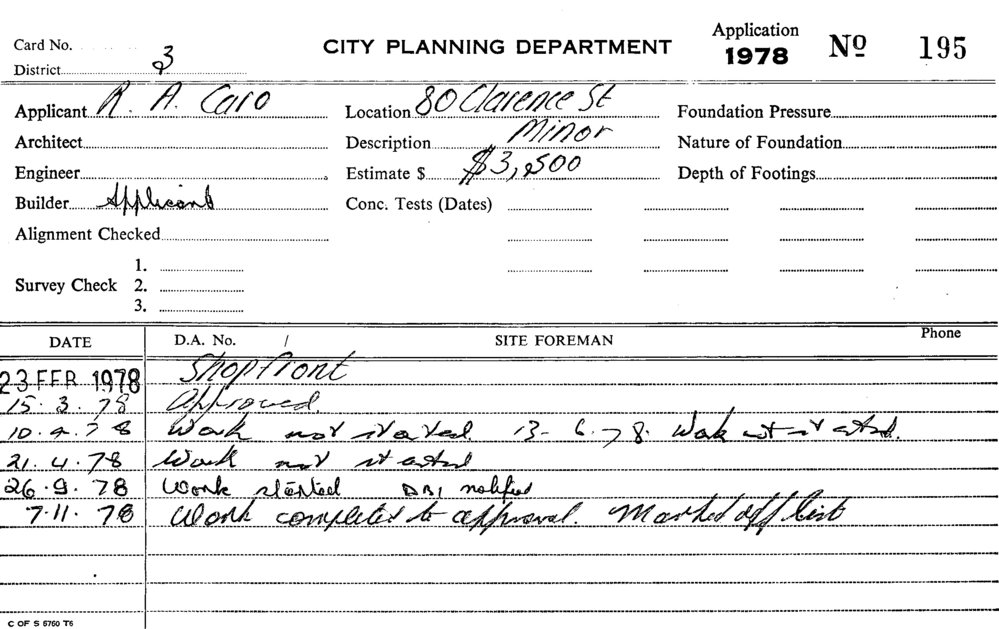 Card No. CITY PLANNING DEPARTMENT Application 1978 Nº 195
District 3
Applicant R. A. Caro Location 80 Clarence St Foundation Pressure
Architect Description Minor Nature of Foundation
Engineer Estimate $ $3,500 Depth of Footings
Builder Applicant Conc. Tests (Dates)
Alignment Checked
1.
Survey Check 2.
3.
DATE D.A. No. / SITE FOREMAN Phone
23 FEB 1978 Shopfront
15.3.78 Approved.
10.4.78 Work not started. 13-6.78. Work not started.
21.4.78 Work not started
26.9.78 Work started DBI notified
7.11.78 Work completed to approval. Marked off list
C OF S 5760 T6